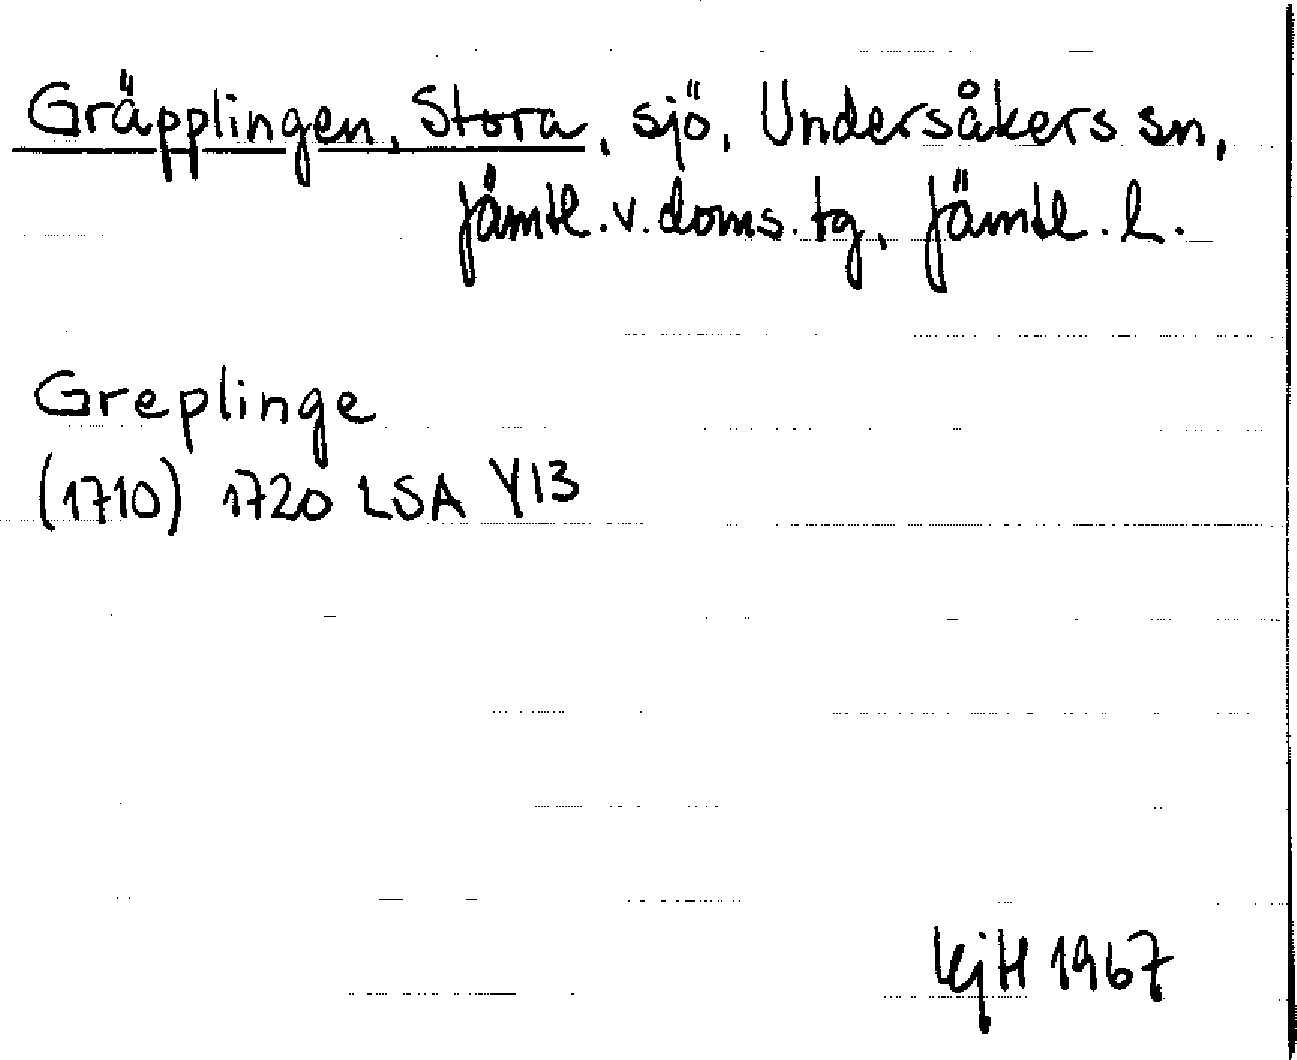 Gräpplingen, Stora, sjö, Undersåkers sn,
Jämtl. v. doms. tg, Jämtl. l.
Greplinge
(1710) 1720 LSA Y13
KjH 1967